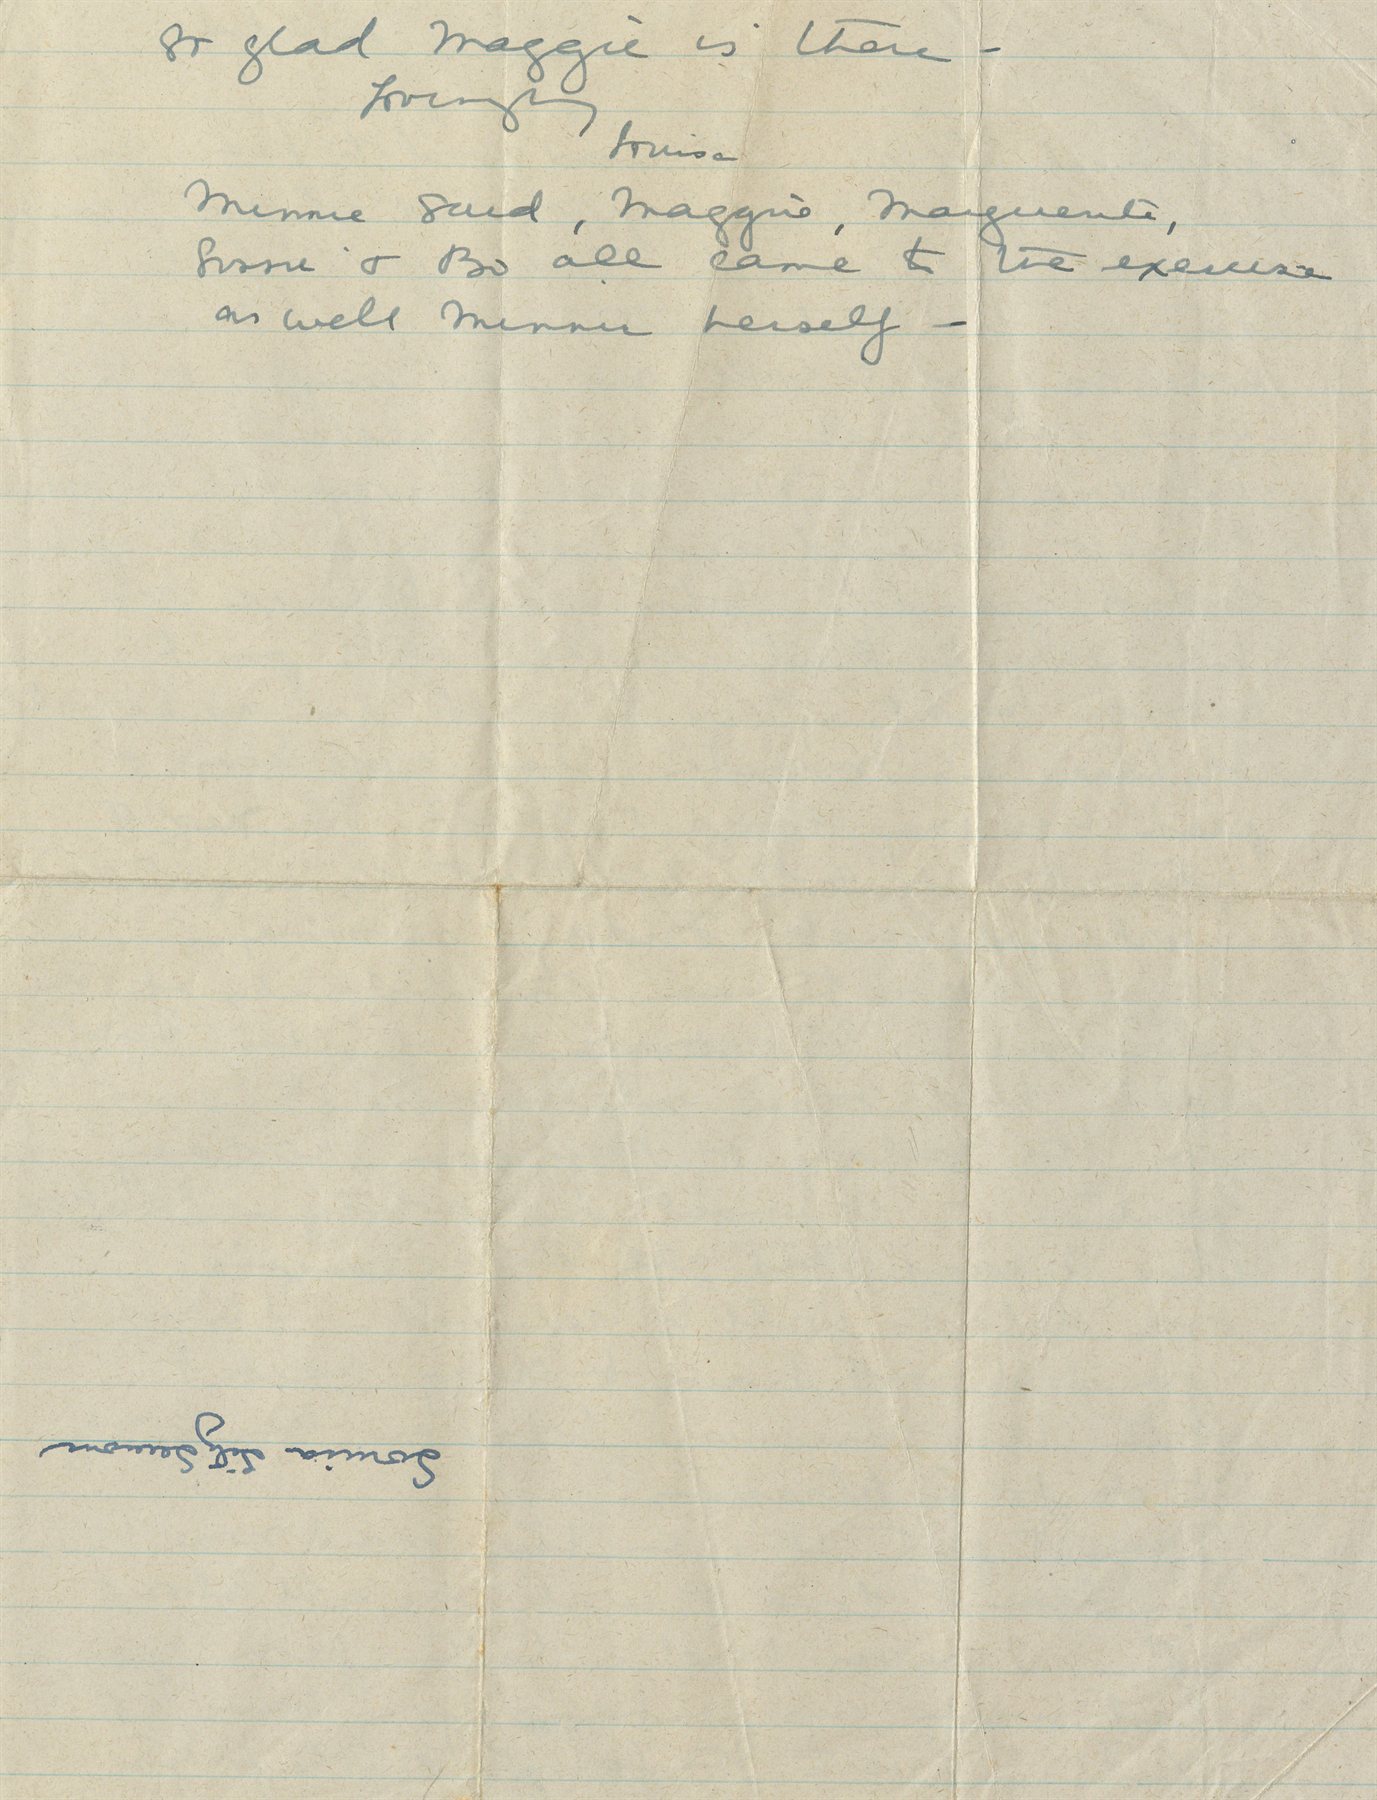 So glad Maggie is there -
Lovingly
Louisa
Minnie said, Maggie, Marguerite,
Sissie & Bo all came to the exercise
as well Minnie herself -
Louisa FitzSimons